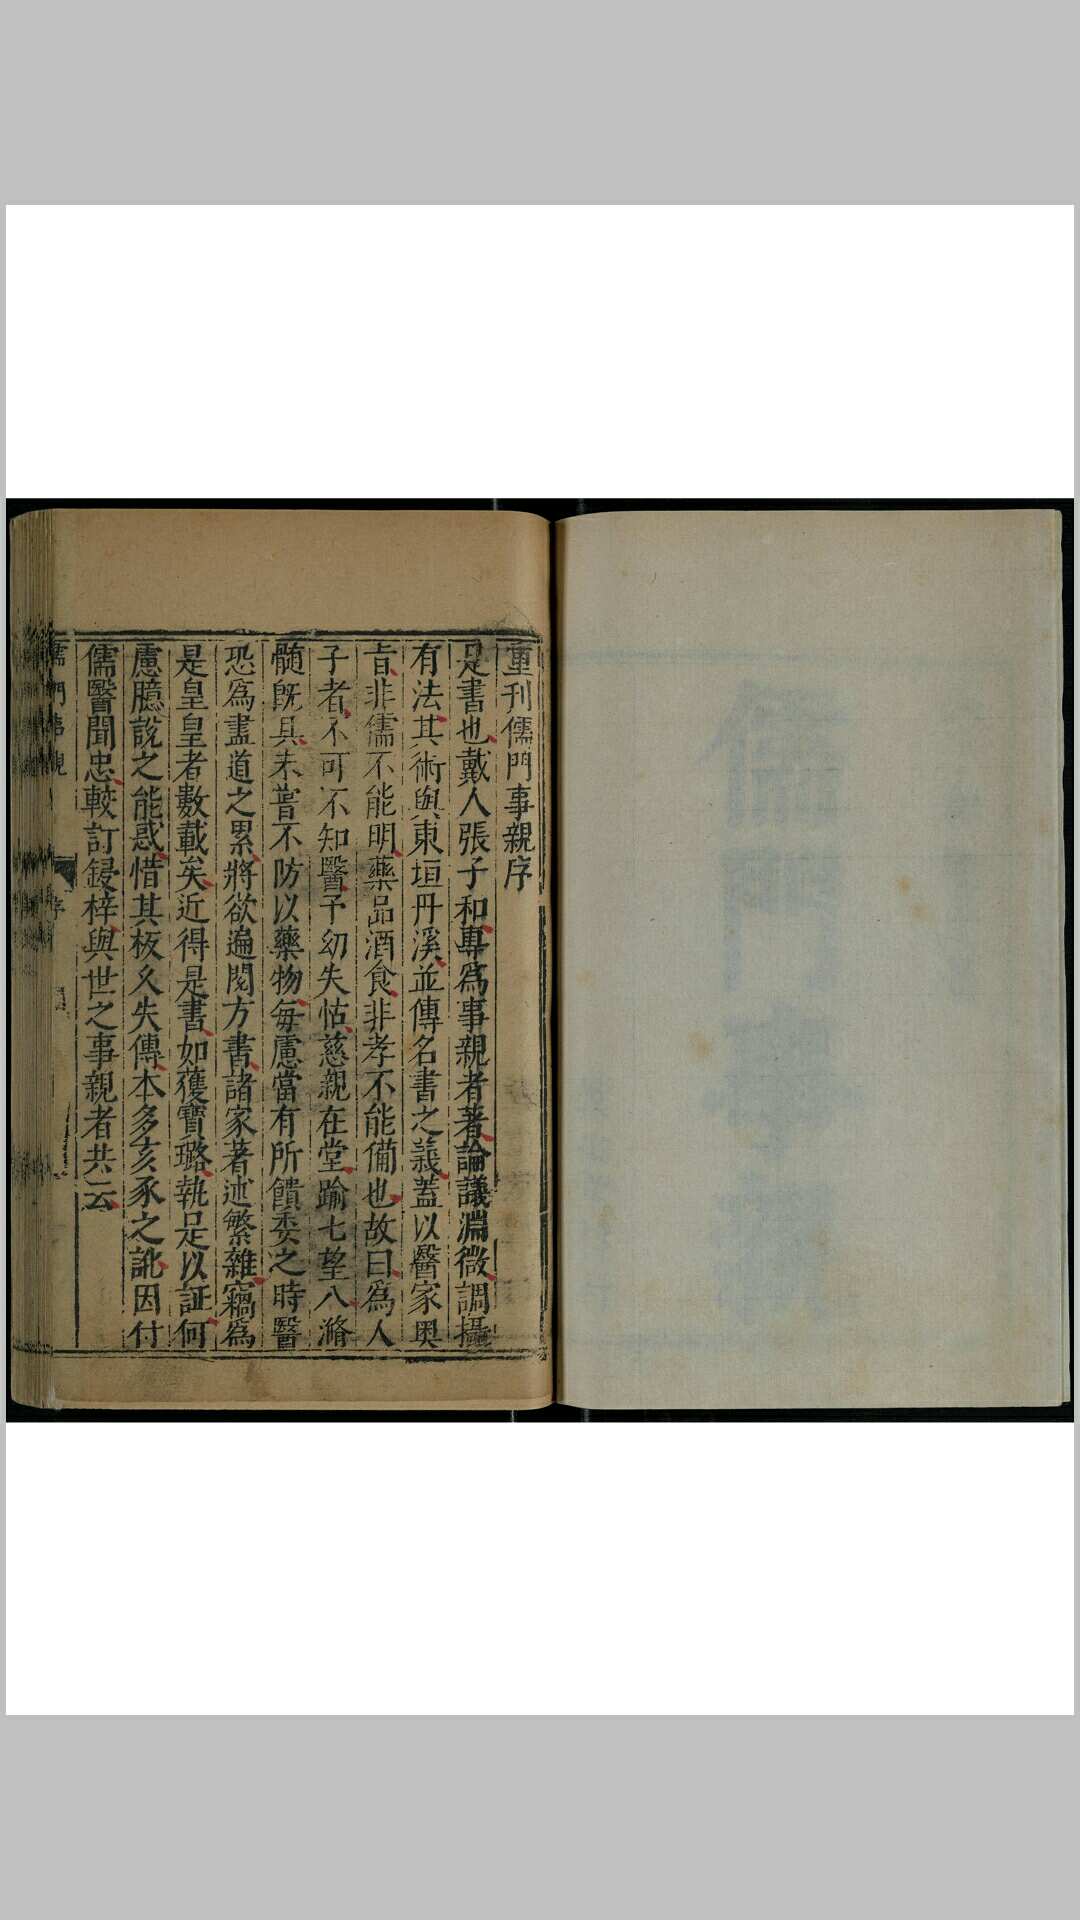 重刊儒門事親序
是書也戴人張子和專爲事親者著論議淵微調攝
有法其術與東垣丹溪並傳名書之義蓋以醫家奥
旨非儒不能明藥品酒食非孝不能備也故曰爲人
子者不可不知醫予幼失怙慈親在堂踰七望八滫
髄旣具未嘗不防以藥物每慮當有所饋委之時醫
恐爲盡道之累將欲遍閱方書諸家著述繁雜竊爲
是皇皇者數載矣近得是書如獲寶璐執足以証何
慮臆說之能惑惜其板久失傳本多亥豕之訛因付
儒醫聞忠較訂鋟梓與世之事親者共云
儒門事親
序